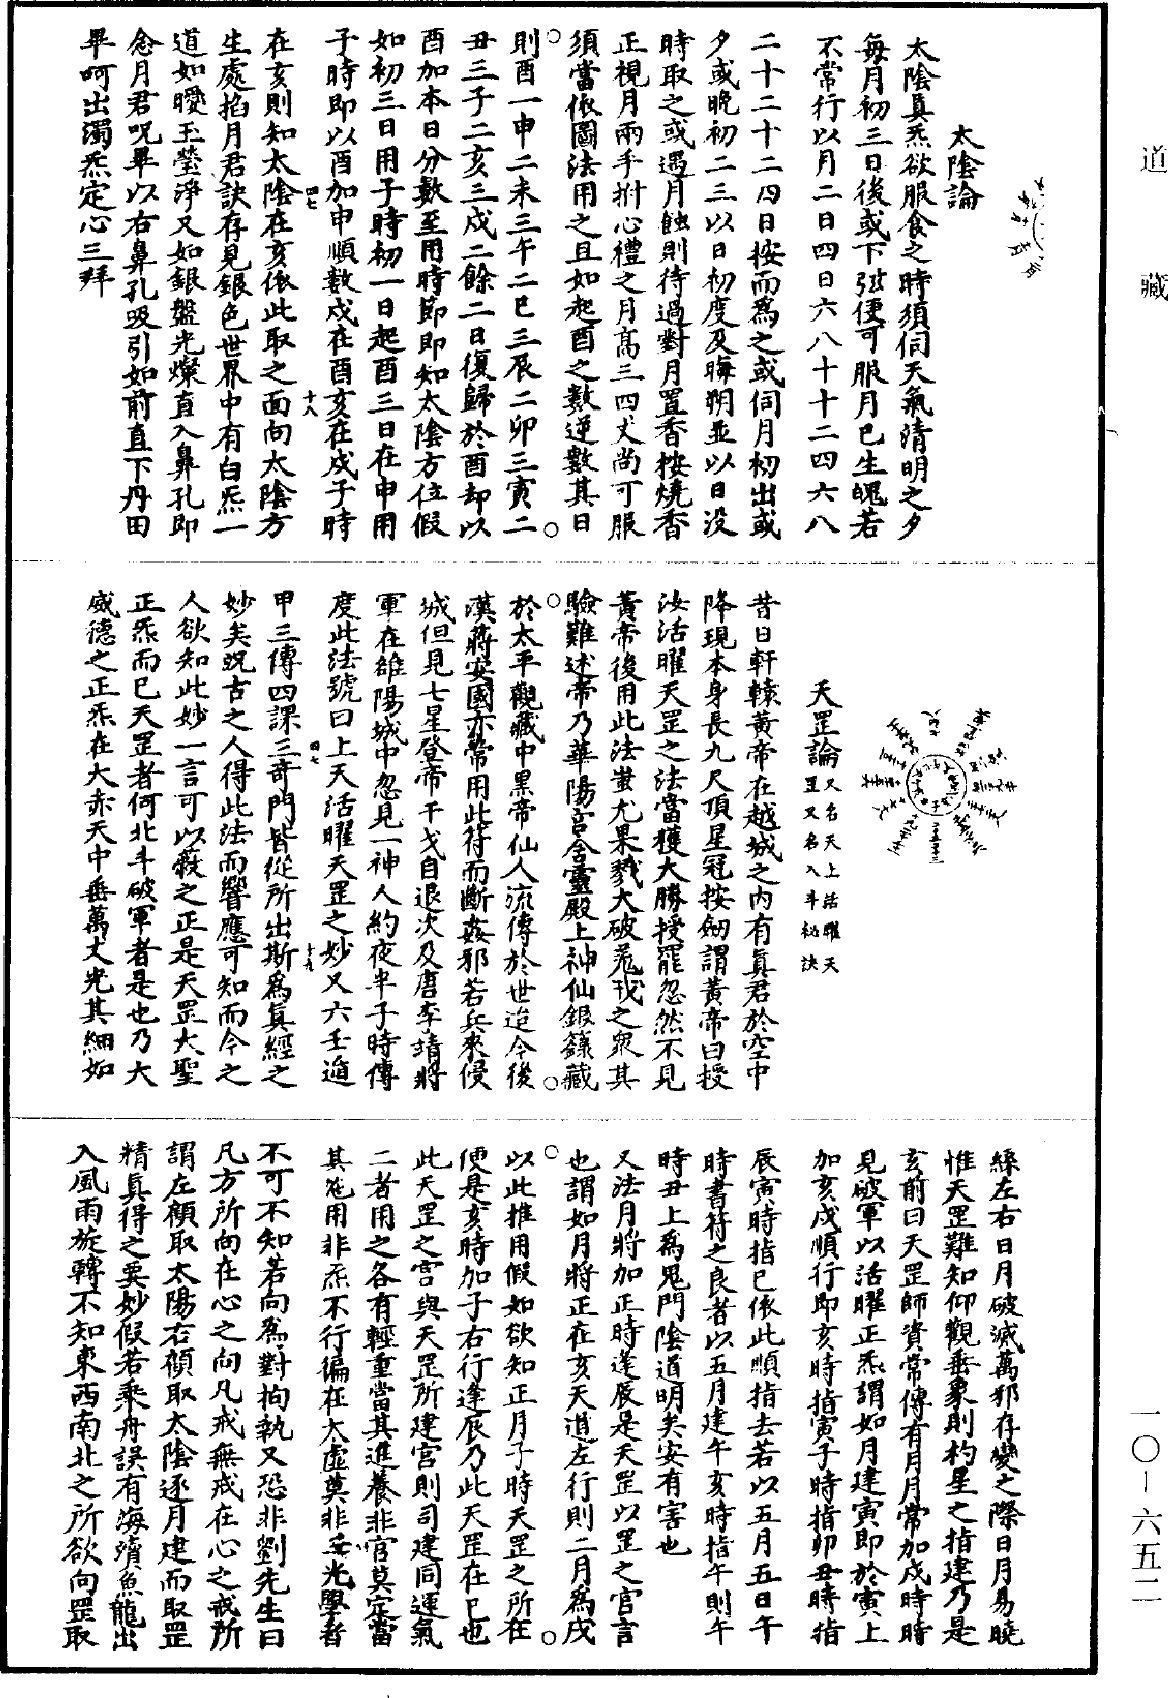 道藏
太陰論
太陰真炁欲服食之時須伺天氣清明之夕
每月初三日後或下弦便可服月巳生魄若
不常行以月二日四日六八十十二四六八
二十二十二四日按而爲之或伺月初出或
夕或晚初二三以日初度及晦朔並以日没
時取之或遇月蝕則待過對月置香按燒香
正視月兩手拊心禮之月高三四丈尚可服
須當依圖法用之且如起酉之數逆數其日
則酉一申二未三午二巳三辰二卯三寅二
丑三子二亥三戌二餘二日復歸於酉却以
酉加本日分數至用時節即知太陰方位假
如初三日用子時初一日起酉三日在申用
子時即以酉加申順數戌在酉亥在戌子時
在亥則知太陰在亥依此取之面向太陰方
生處掐月君訣存見銀色世界中有白炁一
道如曖玉瑩淨又如銀盤光燦直入鼻孔即
念月君呪畢以右鼻孔吸引如前直下丹田
畢呵出濁炁定心三拜
四七
十八
天罡論又名天上活曜天
罡又名入斗祕訣
昔日軒轅黃帝在越城之内有真君於空中
降現本身長九尺頂星冠按劒謂黃帝曰授
汝活曜天罡之法當獲大勝授罷忽然不見
黃帝後用此法蚩尤果戮大破蒐戎之衆其
驗難述帝乃華陽宮含靈殿上神仙銀籙藏
於太平觀藏中黑帝仙人流傳於世迨今後
漢蔣安國亦常用此符而斷姦邪若兵來侵
城但見七星登帝干戈自退次及唐李靖將
軍在雄陽城中忽見一神人約夜半子時傳
度此法號曰上天活曜天罡之妙又六壬遁
甲三傳四課三奇門皆從所出斯爲真經之
妙矣況古之人得此法而響應可知而今之
人欲知此妙一言可以蔽之正是天罡大聖
正炁而已天罡者何北斗破軍者是也乃大
威德之正炁在大赤天中垂萬丈光其細如
四七
十九
綠左右日月破滅萬邪存變之際日月易曉
惟天罡難知仰觀垂象則杓星之指建乃是
玄前曰天罡師資常傳有月月常加戌時時
見破軍以活曜正炁謂如月建寅即於寅上
加亥戌順行即亥時指寅子時指卯丑時指
辰寅時指巳依此順指去若以五月五日午
時書符之良者以五月建午亥時指午則午
時丑上爲鬼門陰道明矣安有害也
又法月將加正時逢辰是天罡以罡之宮言
也謂如月將正在亥天道左行則二月爲戌
以此推用假如欲知正月子時天罡之所在
便是亥時加子右行逢辰乃此天罡在巳也
此天罡之宮與天罡所建宮則司建同運氣
二者用之各有輕重當其進養非官莫定當
其施用非炁不行徧在太虛莫非妥光學者
不可不知若向爲對拘執又恐非劉先生曰
凡方所向在心之向凡戒無戒在心之戒所
謂左顧取太陽右顧取太陰逐月建而取罡
精真得之要妙假若乘舟誤有海濱魚龍出
入風雨旋轉不知東西南北之所欲向罡取
一〇—六五二